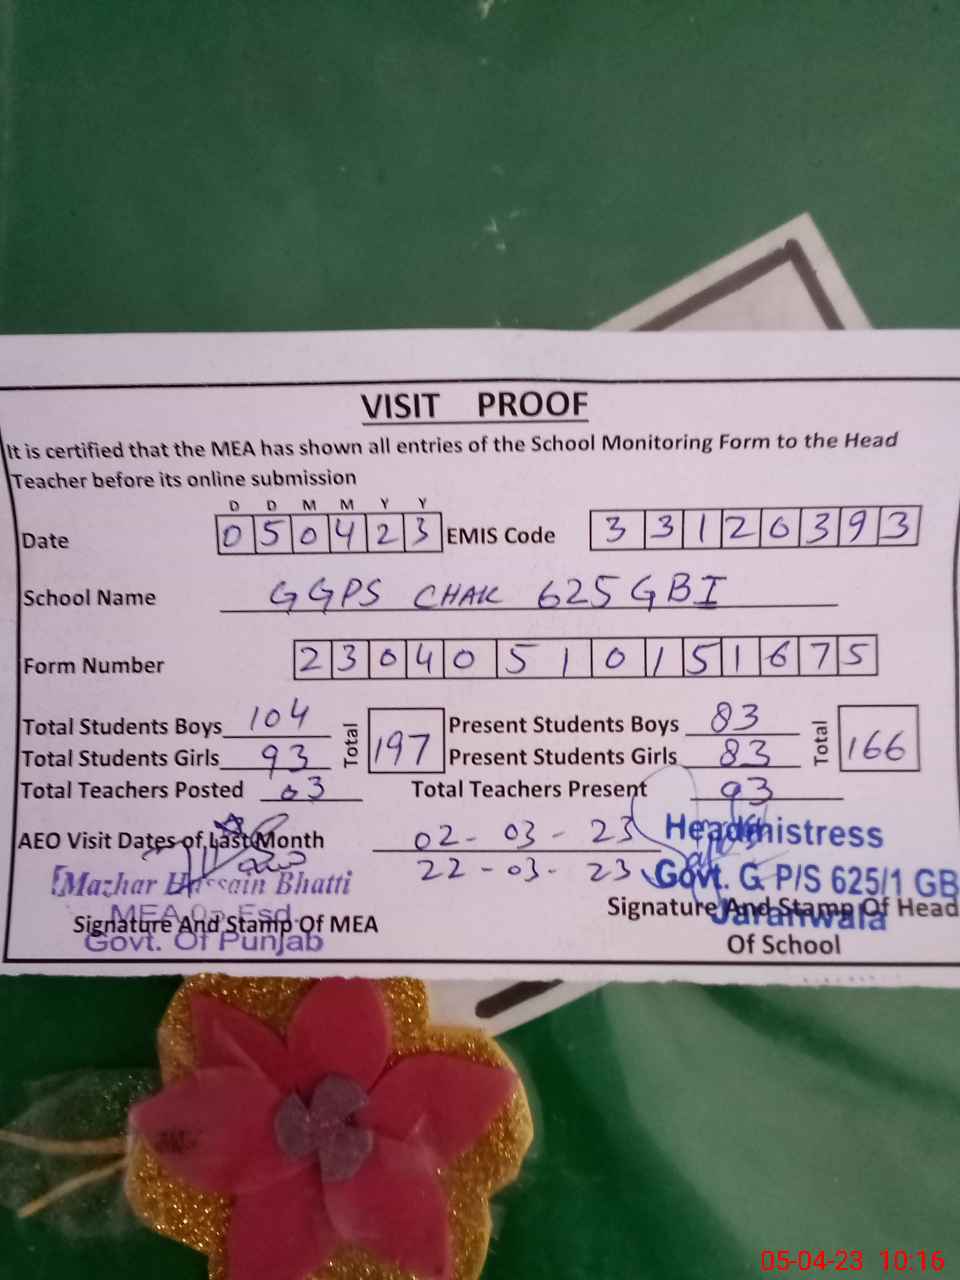 VISIT PROOF
It is certified that the MEA has shown all entries of the School Monitoring Form to the Head
Teacher before its online submission
D D M M Y Y
Date 0 5 0 4 2 3 EMIS Code 3 3 1 2 0 3 9 3
School Name GGPS CHAK 625 GBI
Form Number 2 3 0 4 0 5 1 0 1 5 1 6 7 5
Total Students Boys 104 Total 197 Present Students Boys 83 Total 166
Total Students Girls 93 Present Students Girls 83
Total Teachers Posted 03 Total Teachers Present 03
AEO Visit Dates of Last Month 02-03-23 Headmistress
22-03-23 Govt. G P/S 625/1 GB
Mazhar Hussain Bhatti Jaranwala
MEA Esd.
Signature And Stamp Of MEA Signature And Stamp Of Head
Govt. Of Punjab Of School
05-04-23 10:16